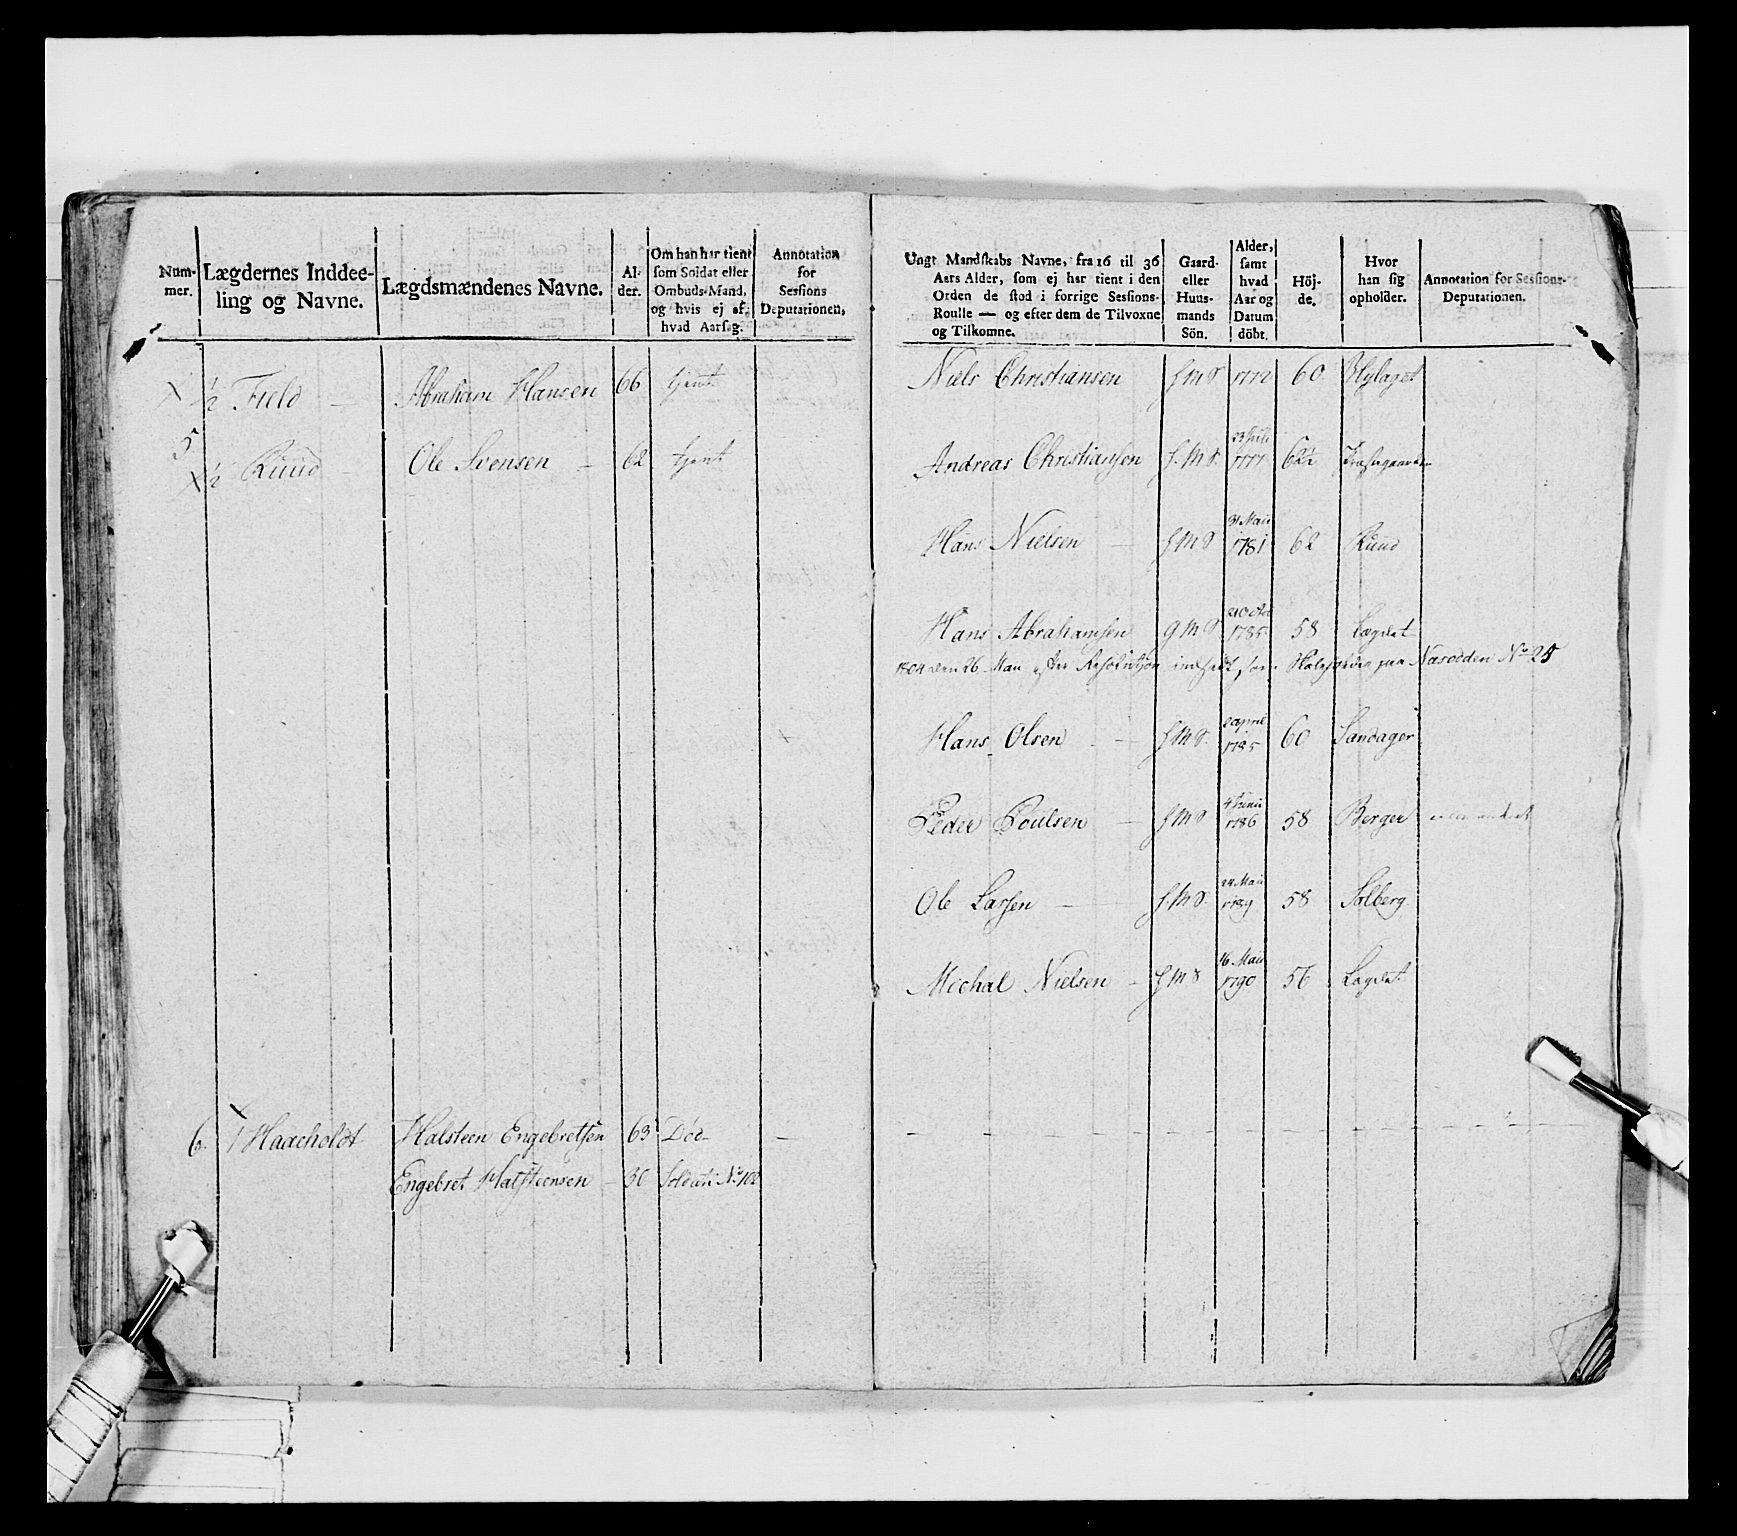 Num-
mer.
Lægdernes Inddee-
ling og Navne.
Lægdsmændenes Navne.
Al-
der.
Om han har tient
som Soldat eller
Ombuds-Mand,
og hvis ej af
hvad Aarsag.
Annotation
for
Sessions
Deputationen,
5
½ Field Abraham Hansen 66 tjent
½ Ruud Ole Svensen 62 tjent
6. 1 Haacholdt Halsteen Engebretsen 63 Död
Engebret Halsteensen 30 Soldat No 102
Ungt Mandskabs Navne, fra 16 til 36
Aars Alder, som ej har tient i den
Orden de stod i forrige Sessions-
Roulle — og efter dem de Tilvoxne
og Tilkomne.
Gaard-
eller
Huus-
mands
Sön.
Alder,
samt
hvad
Aar og
Datum
döbt.
Höj-
de.
Hvor
han sig
opholder.
Annotation for Sessions-
Deputationen.
Niels Christiansen H M S 1772 60
23 Juli
Andreas Christiansen H. M S. 1777 62½
31 Maii
Hans Nielsen H M S 1781 62 Ruud
Hans Abrahamsen G M S 1785 58 Lægdet
1804 den 26 Mai efter Resolution indsadt for Næsodden No 25
2 april
Hans Olsen H M S. 1785 60 Sandager
4 Junii
Peder Poulsen H M S 1786 58 Berger
24 Maii
Ole Larsen H. M S. 1789 58 Solberg
16 Maii
Mechal Nielsen H M S 1790 56 Lægdet